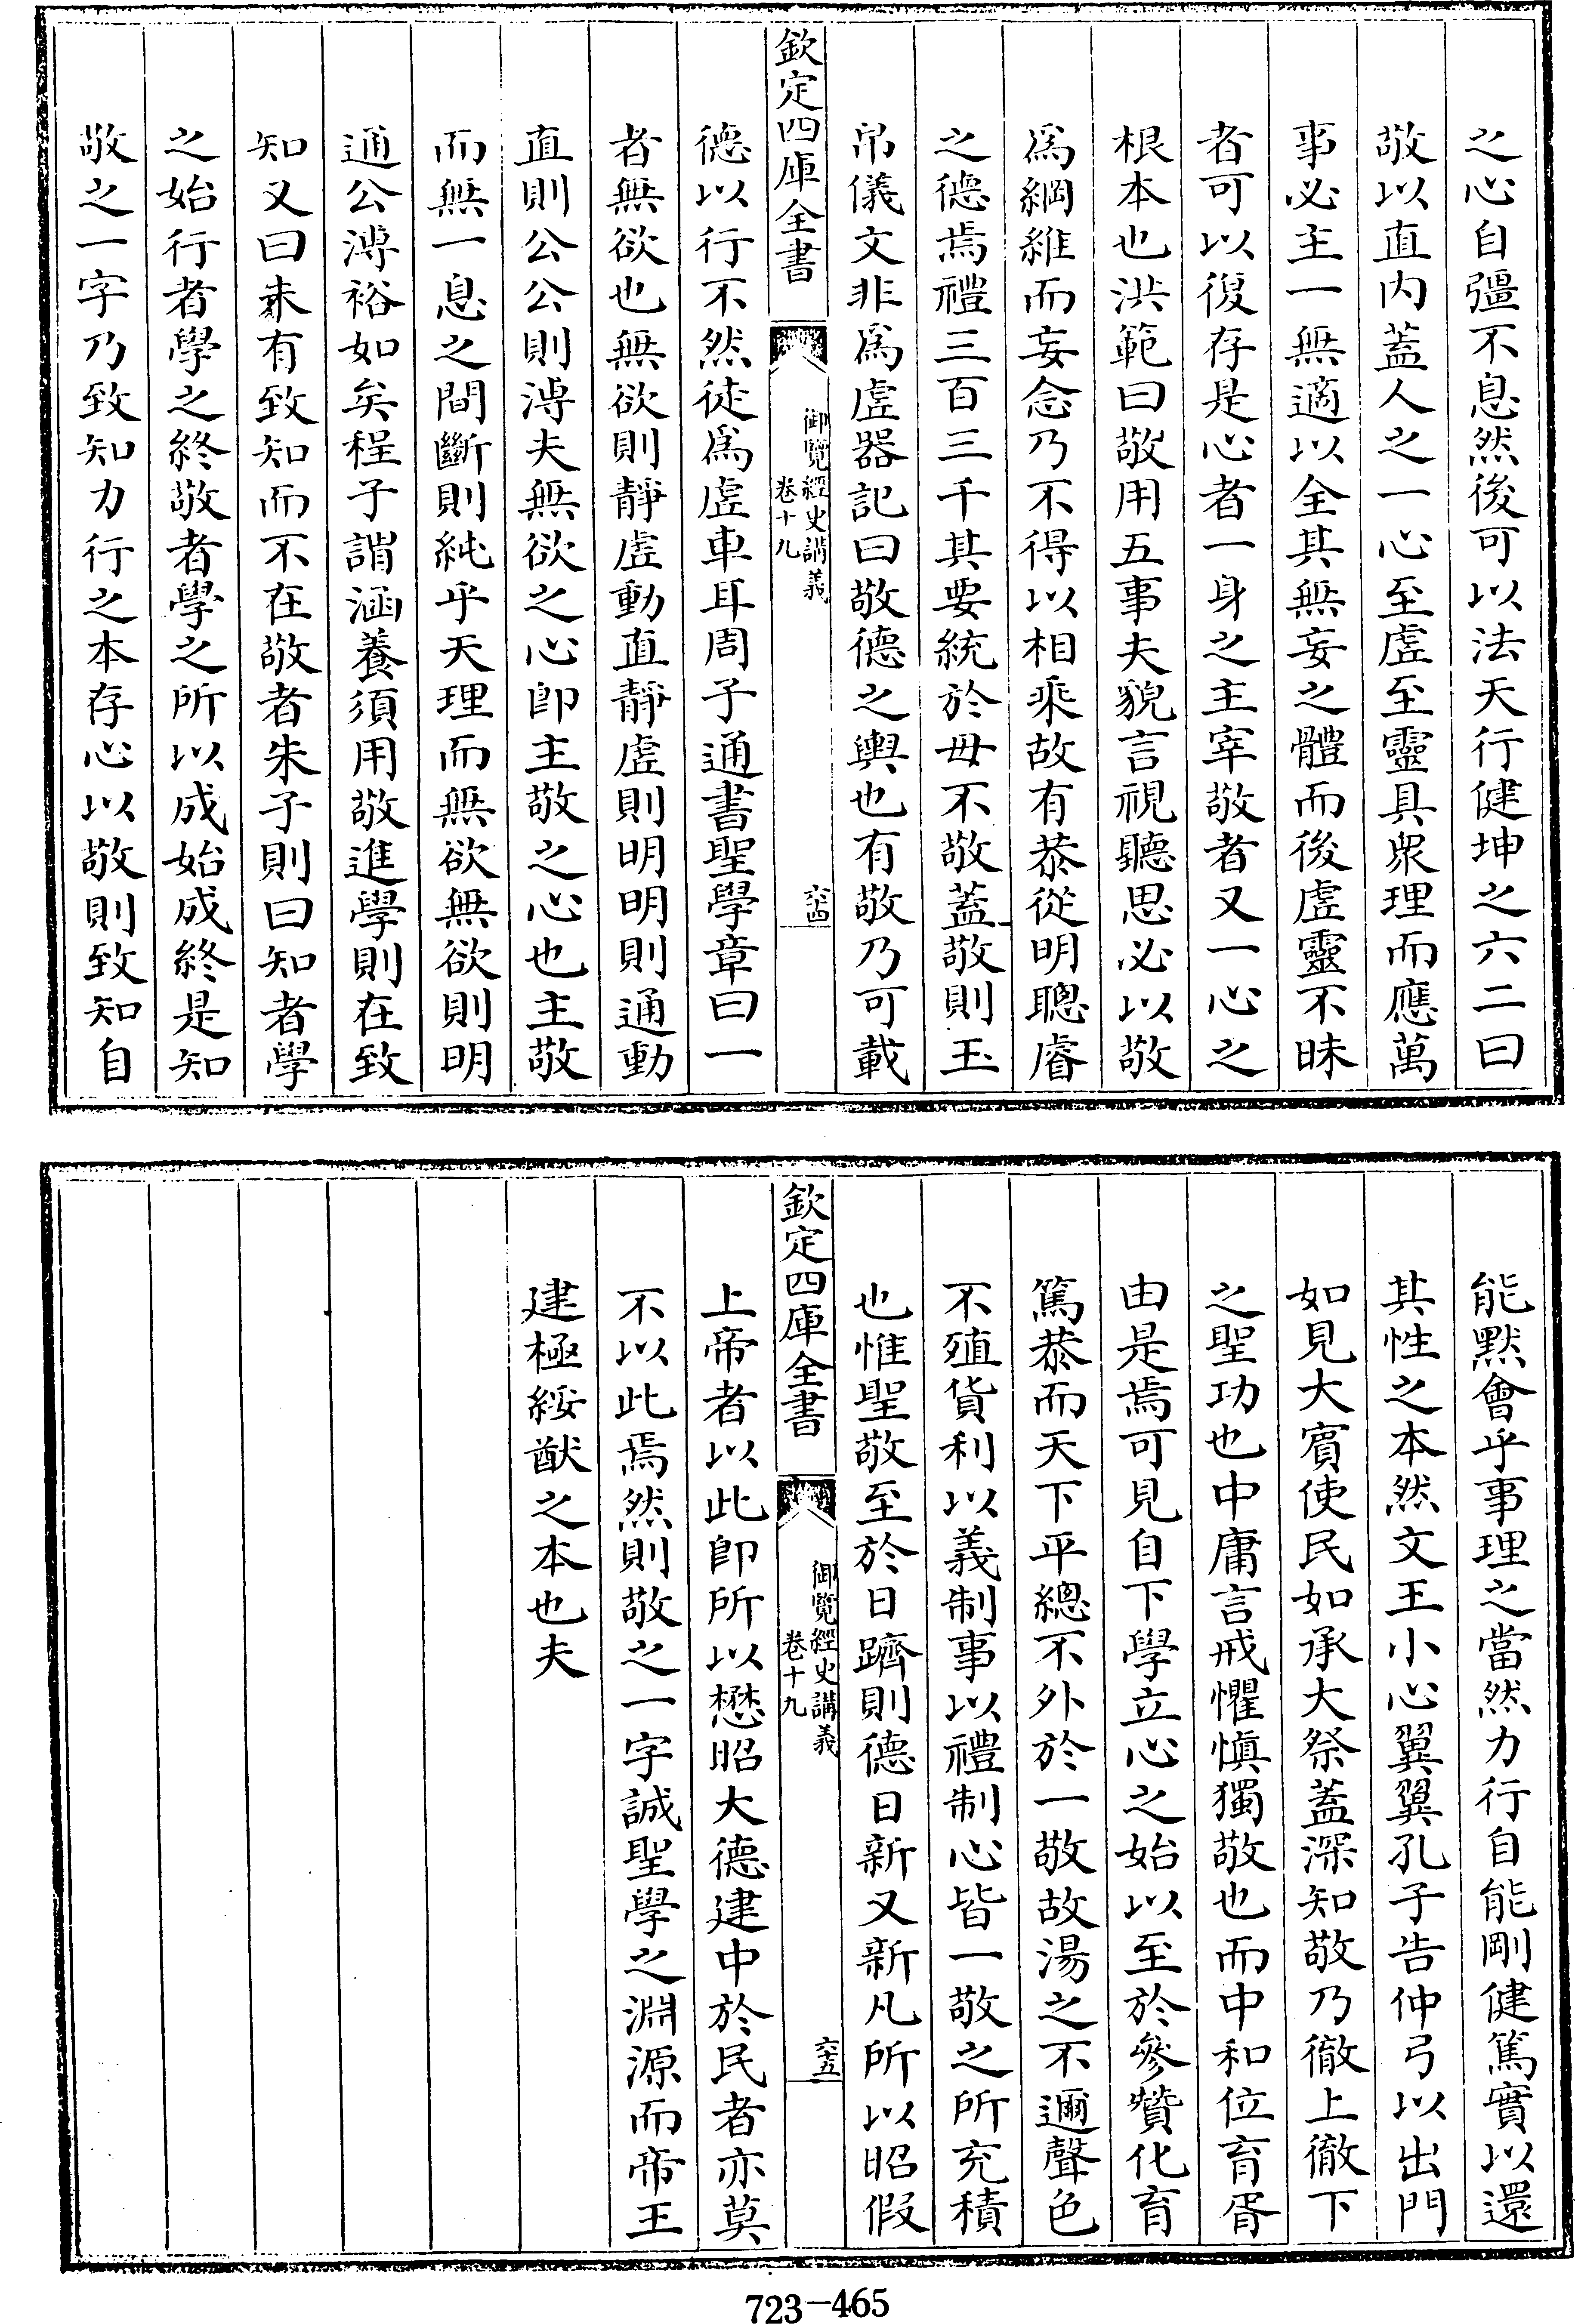 之心自彊不息然後可以法天行健坤之六二曰
敬以直内蓋人之一心至虛至靈具衆理而應萬
事必主一無適以全其無妄之體而後虛靈不昧
者可以復存是心者一身之主宰敬者又一心之
根本也洪範曰敬用五事夫貌言視聽思必以敬
爲綱維而妄念乃不得以相乘故有恭從明聰睿
之德焉禮三百三千其要統於毋不敬蓋敬則玉
帛儀文非爲虛器記曰敬德之輿也有敬乃可載
欽定四庫全書
御覽經史講義
卷十九
六十四
德以行不然徒爲虛車耳周子通書聖學章曰一
者無欲也無欲則靜虛動直靜虛則明明則通動
直則公公則溥夫無欲之心即主敬之心也主敬
而無一息之間斷則純乎天理而無欲無欲則明
通公溥裕如矣程子謂涵養須用敬進學則在致
知又曰未有致知而不在敬者朱子則曰知者學
之始行者學之終敬者學之所以成始成終是知
敬之一字乃致知力行之本存心以敬則致知自
能默會乎事理之當然力行自能剛健篤實以還
其性之本然文王小心翼翼孔子告仲弓以出門
如見大賓使民如承大祭蓋深知敬乃徹上徹下
之聖功也中庸言戒懼慎獨敬也而中和位育胥
由是焉可見自下學立心之始以至於參贊化育
篤恭而天下平總不外於一敬故湯之不邇聲色
不殖貨利以義制事以禮制心皆一敬之所充積
也惟聖敬至於日躋則德日新又新凡所以昭假
欽定四庫全書
御覽經史講義
卷十九
六十五
上帝者以此即所以懋昭大德建中於民者亦莫
不以此焉然則敬之一字誠聖學之淵源而帝王
建極綏猷之本也夫
723-465